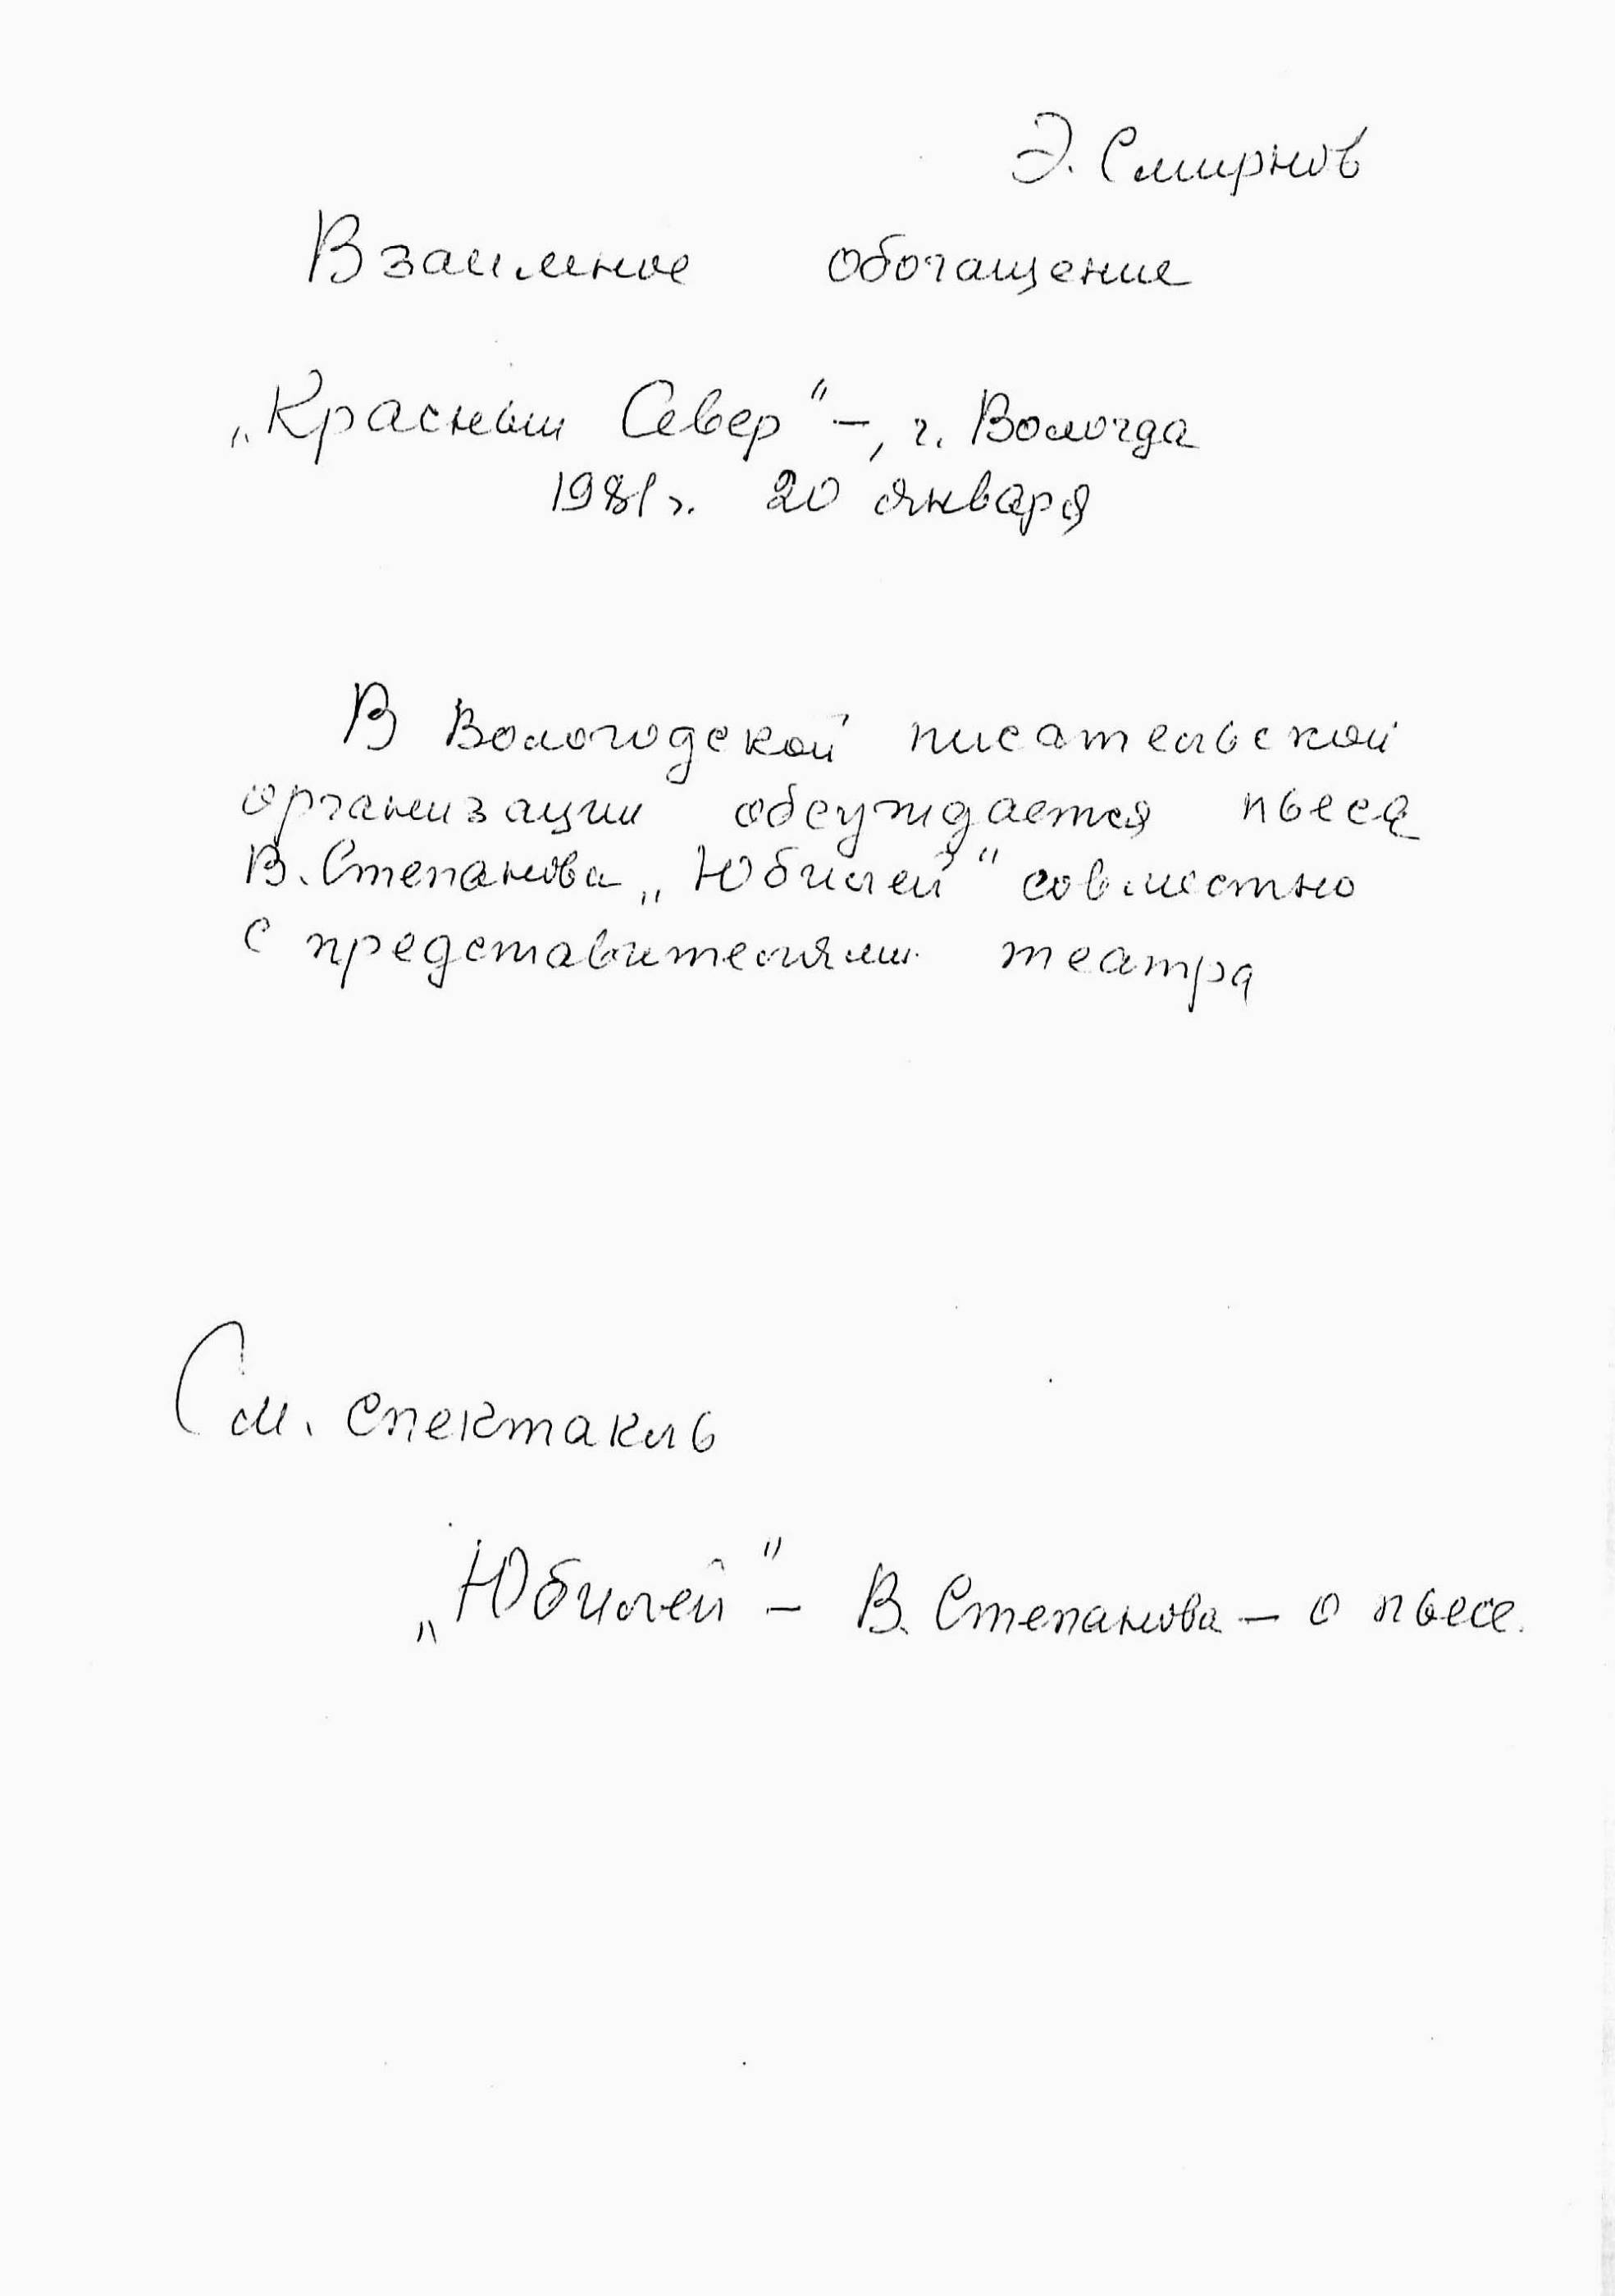 Э. Смирнов
Взаимное обогащение
„Красный Север" –, г. Вологда
1981 г. 20 января
В Вологодской писательской
организации обсуждается пьеса
В. Степанова „Юбилей" совместно
с представителями театра
См. спектакль
„Юбилей" – В. Степанова – о пьесе.